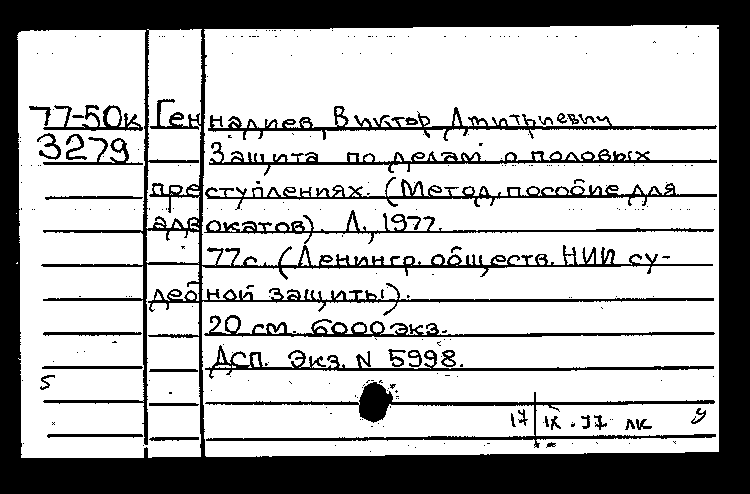 77-50к Геннадиев, Виктор Дмитриевич
3279 Защита по делам о половых
преступлениях. (Метод. пособие для
адвокатов). Л., 1977.
77с. (Ленингр. обществ. НИИ су-
дебной защиты).
20 см. 6000 экз.
ДСП. Экз. N 5998.
5
17 IX. 77 лк